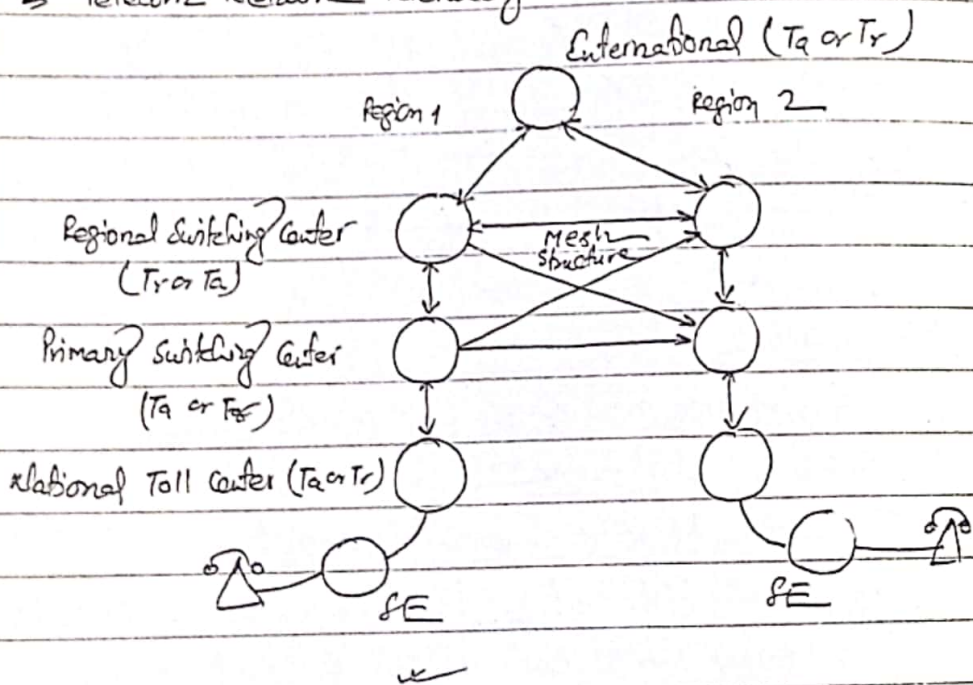 Telecom Network Hierarchy
International (Ta or Tr)
Region 1
Region 2
Regional Switching Center
(Tr or Ta)
Mesh
Structure
Primary Switching Center
(Ta or Tr)
National Toll Center (Ta or Tr)
SE
SE